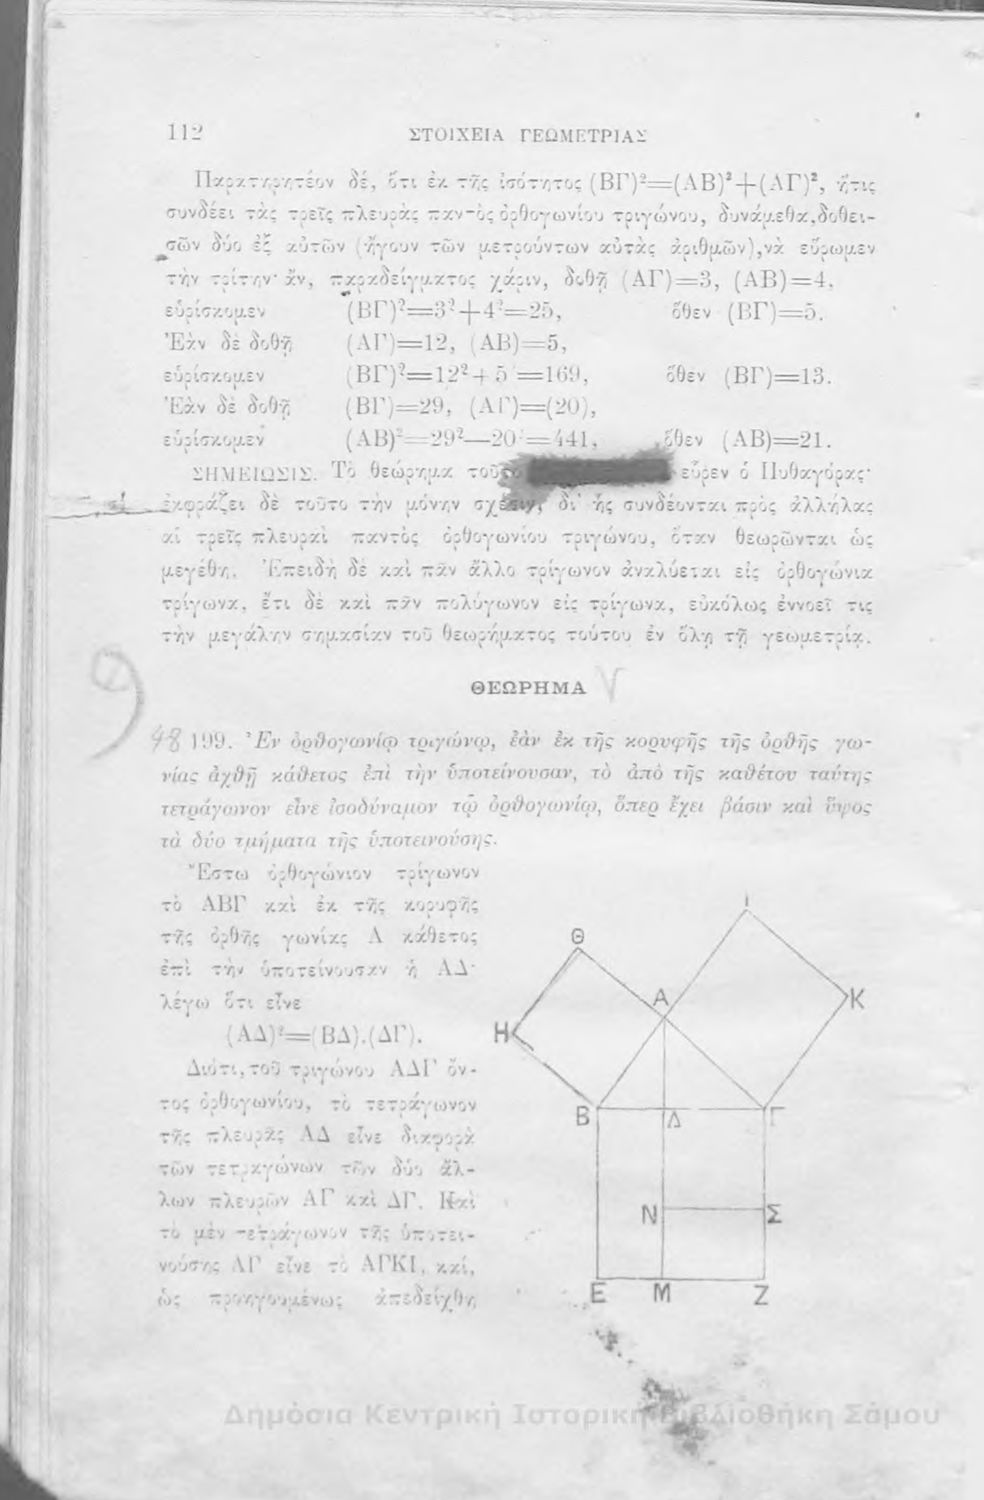 112 ΣΤΟΙΧΕΙΑ ΓΕΩΜΕΤΡΙΑΣ
Παρατηρητέον δέ, ὅτι ἐκ τῆς ἰσότητος (ΒΓ)²=(ΑΒ)²+(ΑΓ)², ἥτις
συνδέει τὰς τρεῖς πλευρὰς παντὸς ὀρθογωνίου τριγώνου, δυνάμεθα, δοθει-
σῶν δύο ἐξ αὐτῶν (ἤγουν τῶν μετρούντων αὐτὰς ἀριθμῶν), νὰ εὕρωμεν
τὴν τρίτην· ἄν, παραδείγματος χάριν, δοθῇ (ΑΓ)=3, (ΑΒ)=4,
εὑρίσκομεν (ΒΓ)²=3²+4²=25, ὅθεν (ΒΓ)=5.
Ἐὰν δὲ δοθῇ (ΑΓ)=12, (ΑΒ)=5,
εὑρίσκομεν (ΒΓ)²=12²+5²=169, ὅθεν (ΒΓ)=13.
Ἐὰν δὲ δοθῇ (ΒΓ)=29, (ΑΓ)=(20),
εὑρίσκομεν (ΑΒ)²=29²—20²=441, ὅθεν (ΑΒ)=21.
ΣΗΜΕΙΩΣΙΣ. Τὸ θεώρημα τοῦτο εὗρεν ὁ Πυθαγόρας·
ἐκφράζει δὲ τοῦτο τὴν μόνην σχέσιν, δι' ἧς συνδέονται πρὸς ἀλλήλας
αἱ τρεῖς πλευραὶ παντὸς ὀρθογωνίου τριγώνου, ὅταν θεωρῶνται ὡς
μεγέθη. Ἐπειδὴ δὲ καὶ πᾶν ἄλλο τρίγωνον ἀναλύεται εἰς ὀρθογώνια
τρίγωνα, ἔτι δὲ καὶ πᾶν πολύγωνον εἰς τρίγωνα, εὐκόλως ἐννοεῖ τις
τὴν μεγάλην σημασίαν τοῦ θεωρήματος τούτου ἐν ὅλῃ τῇ γεωμετρίᾳ.
ΘΕΩΡΗΜΑ
48 199. Ἐν ὀρθογωνίῳ τριγώνῳ, ἐὰν ἐκ τῆς κορυφῆς τῆς ὀρθῆς γω-
νίας ἀχθῇ κάθετος ἐπὶ τὴν ὑποτείνουσαν, τὸ ἀπὸ τῆς καθέτου ταύτης
τετράγωνον εἶνε ἰσοδύναμον τῷ ὀρθογωνίῳ, ὅπερ ἔχει βάσιν καὶ ὕψος
τὰ δύο τμήματα τῆς ὑποτεινούσης.
Ἔστω ὀρθογώνιον τρίγωνον
τὸ ΑΒΓ καὶ ἐκ τῆς κορυφῆς
τῆς ὀρθῆς γωνίας Α κάθετος
ἐπὶ τὴν ὑποτείνουσαν ἡ ΑΔ·
λέγω ὅτι εἶνε
(ΑΔ)²=(ΒΔ).(ΔΓ).
Διότι, τοῦ τριγώνου ΑΔΓ ὄν-
τος ὀρθογωνίου, τὸ τετράγωνον
τῆς πλευρᾶς ΑΔ εἶνε διαφορὰ
τῶν τετραγώνων τῶν δύο ἄλ-
λων πλευρῶν ΑΓ καὶ ΔΓ. Καὶ
τὸ μὲν τετράγωνον τῆς ὑποτει-
νούσης ΑΓ εἶνε τὸ ΑΓΚΙ, καί,
ὡς προηγουμένως ἀπεδείχθη
Ι
Θ
Α Κ
Η
Β Δ Γ
Ν Σ
Ε Μ Ζ
Δημόσια Κεντρική Ιστορική Βιβλιοθήκη Σάμου